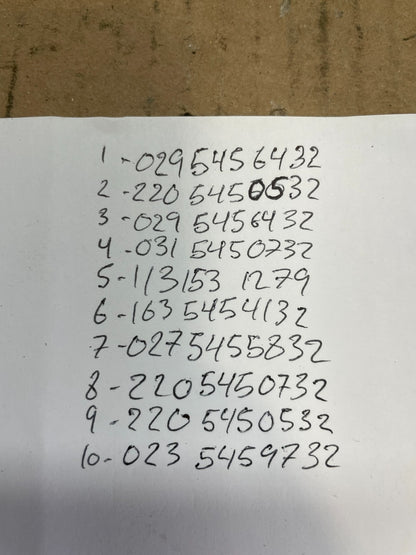 1 - 029 5456432
2 - 220 5450532
3 - 029 5456432
4 - 031 5450732
5 - 113153 1279
6 - 163 5454132
7 - 0275455832
8 - 2205450732
9 - 220 5450532
10 - 023 5459732